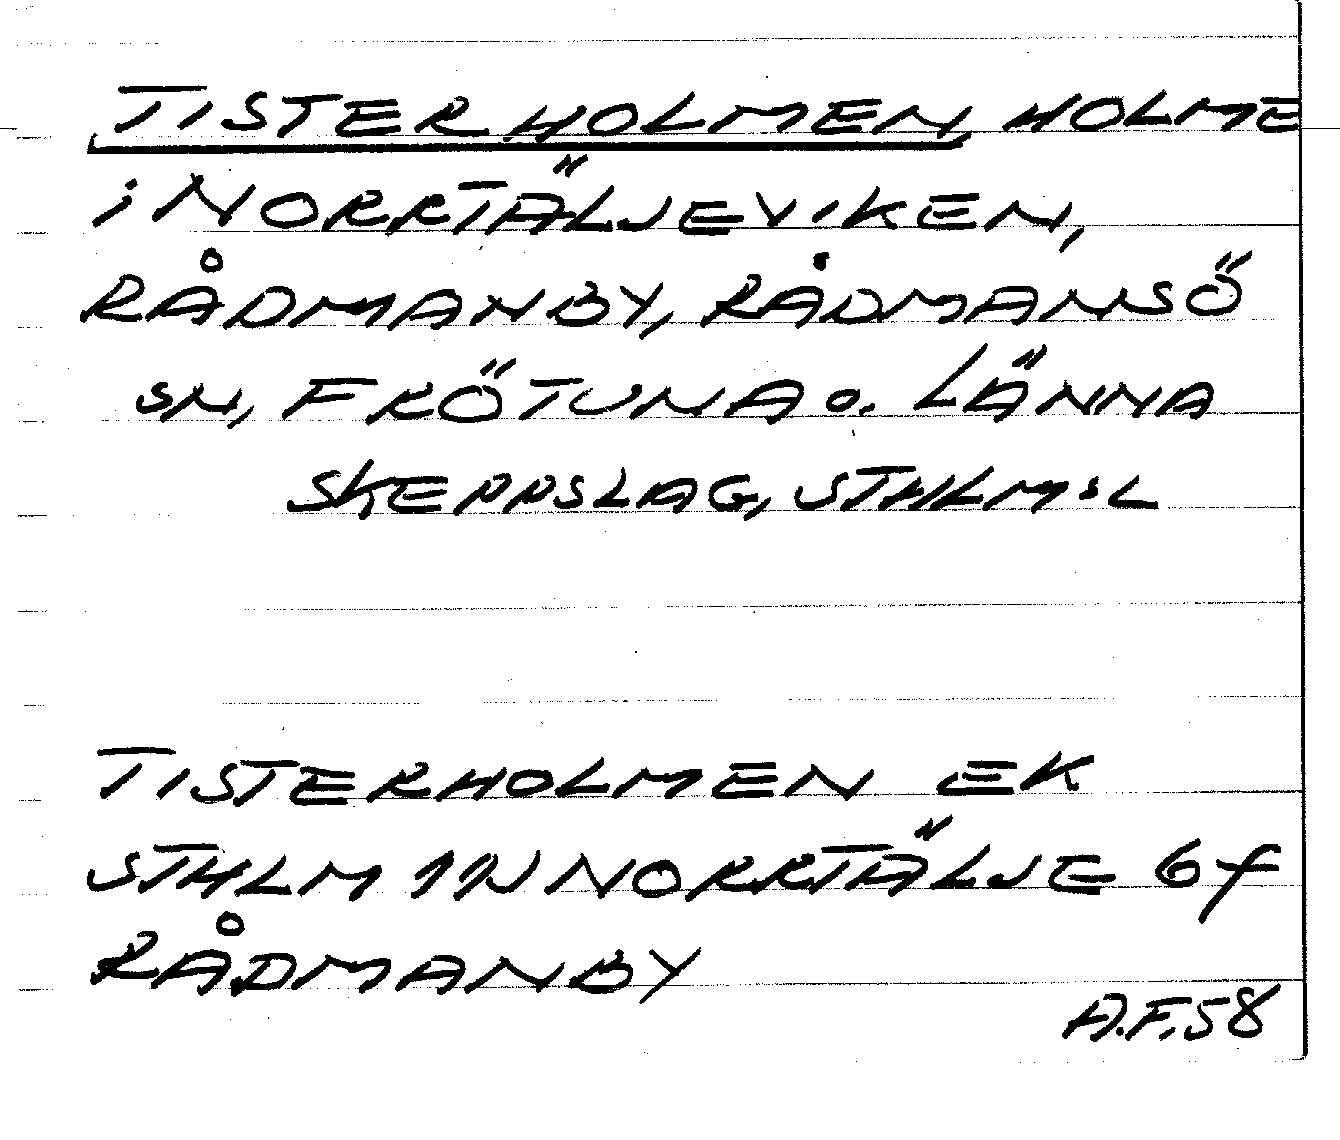 TISTERHOLMEN, HOLME
i NORRTÄLJEVIKEN,
RÅDMANBY, RÅDMANSÖ
SN, FRÖTUNA o. LÄNNA
SKEPPSLAG, STHLM:S L
TISTERHOLMEN EK
STHLM 11NV NORRTÄLJE 6f
RÅDMANBY
A.F.58